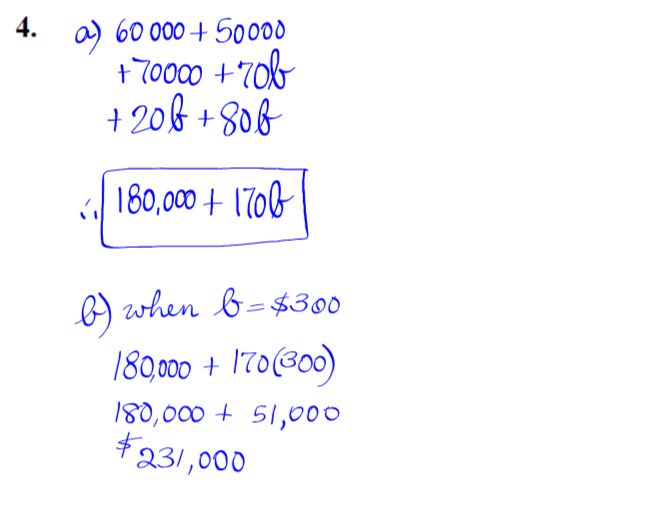 4. a) 60 000 + 50000
+70000 + 70b
+ 20b + 80b
∴ 180,000 + 170b
b) when b = $300
180,000 + 170(300)
180,000 + 51,000
$231,000